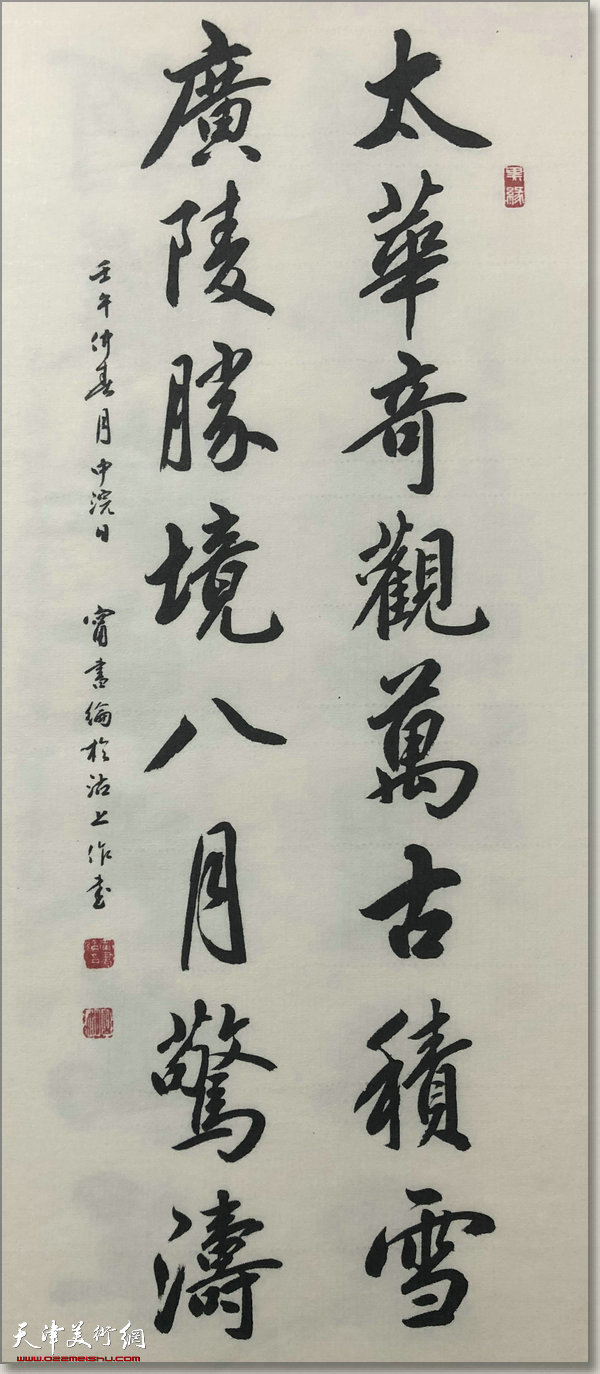 太華奇觀萬古積雪
廣陵勝境八月驚濤
壬午仲春月中浣日 甯書綸於沽上作书
墨緣
天津美術網
www.022meishu.com